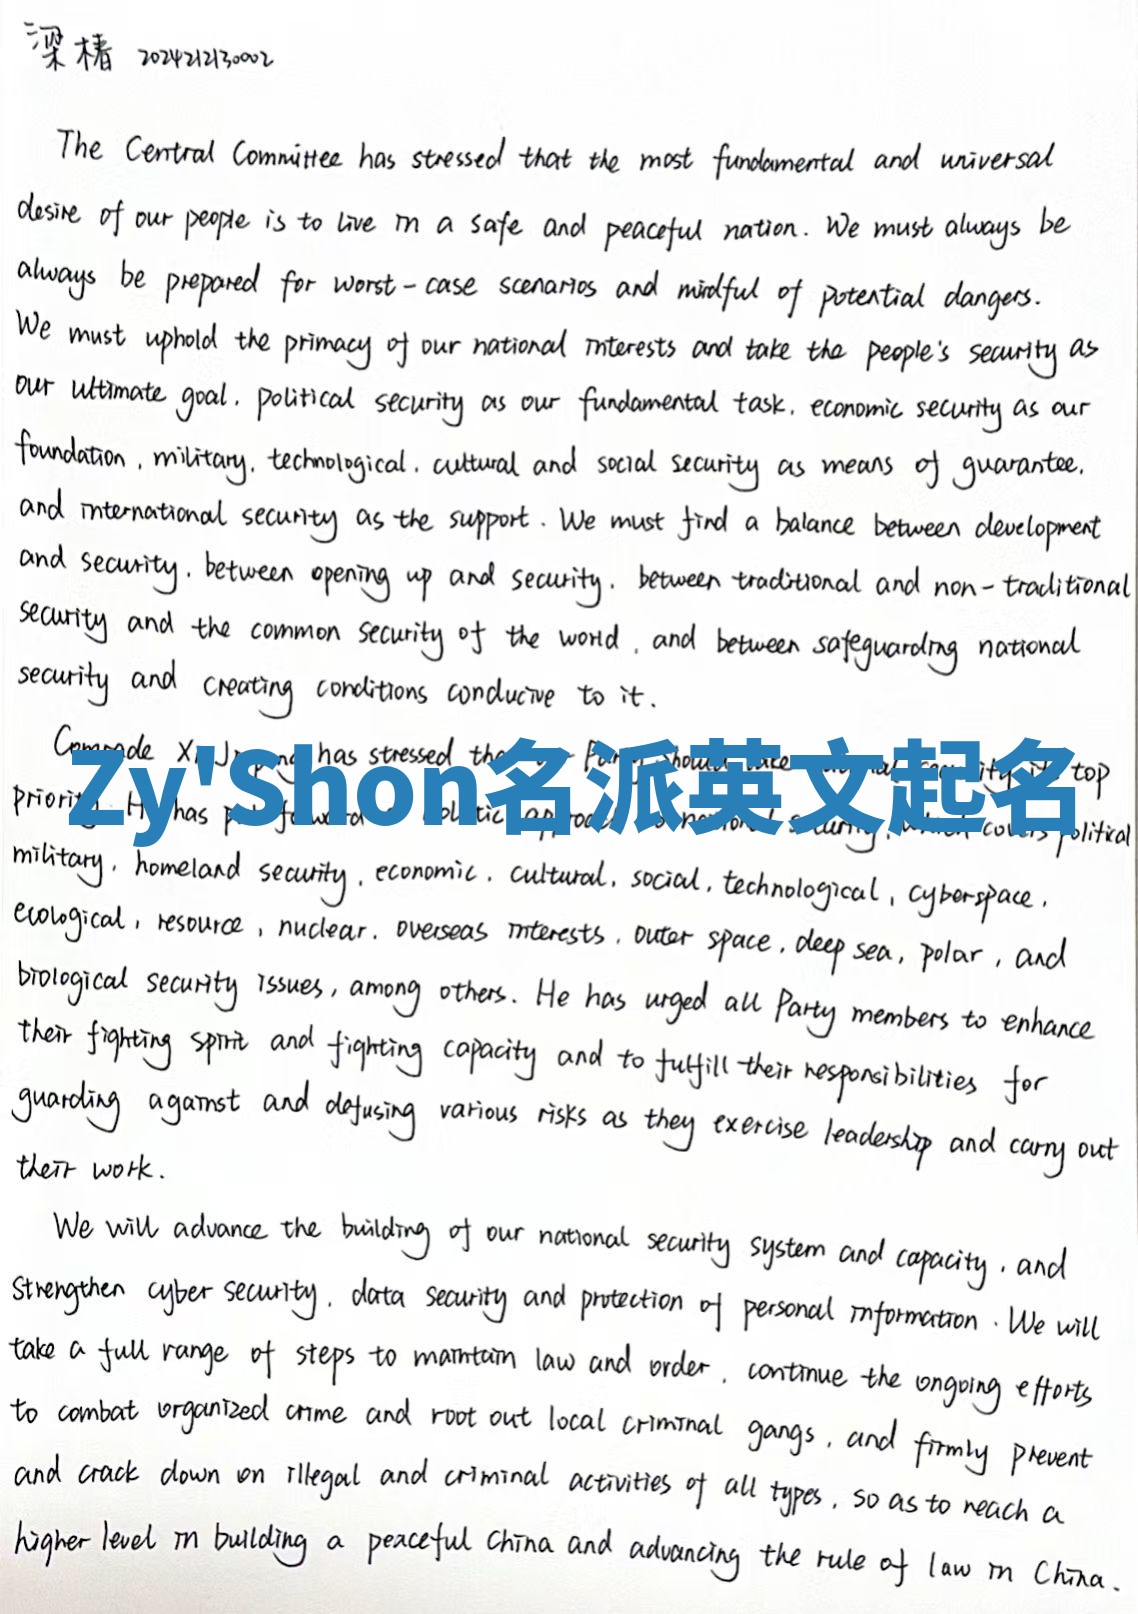 梁椿 2024212130002
The Central Committee has stressed that the most fundamental and universal
desire of our people is to live in a safe and peaceful nation. We must always be
always be prepared for worst-case scenarios and mindful of potential dangers.
We must uphold the primacy of our national interests and take the people's security as
our ultimate goal, political security as our fundamental task, economic security as our
foundation, military, technological, cultural and social security as means of guarantee,
and international security as the support. We must find a balance between development
and security, between opening up and security, between traditional and non-traditional
security and the common security of the world, and between safeguarding national
security and creating conditions conducive to it.
Comrade has stressed top
Zy'Shon名派英文起名
has political
military, homeland security, economic, cultural, social, technological, cyberspace,
ecological, resource, nuclear, overseas interests, outer space, deep sea, polar, and
biological security issues, among others. He has urged all Party members to enhance
their fighting spirit and fighting capacity and to fulfill their responsibilities for
guarding against and defusing various risks as they exercise leadership and carry out
their work.
We will advance the building of our national security system and capacity, and
strengthen cyber security, data security and protection of personal information. We will
take a full range of steps to maintain law and order, continue the ongoing efforts
to combat organized crime and root out local criminal gangs, and firmly prevent
and crack down on illegal and criminal activities of all types, so as to reach a
higher level in building a peaceful China and advancing the rule of law in China.